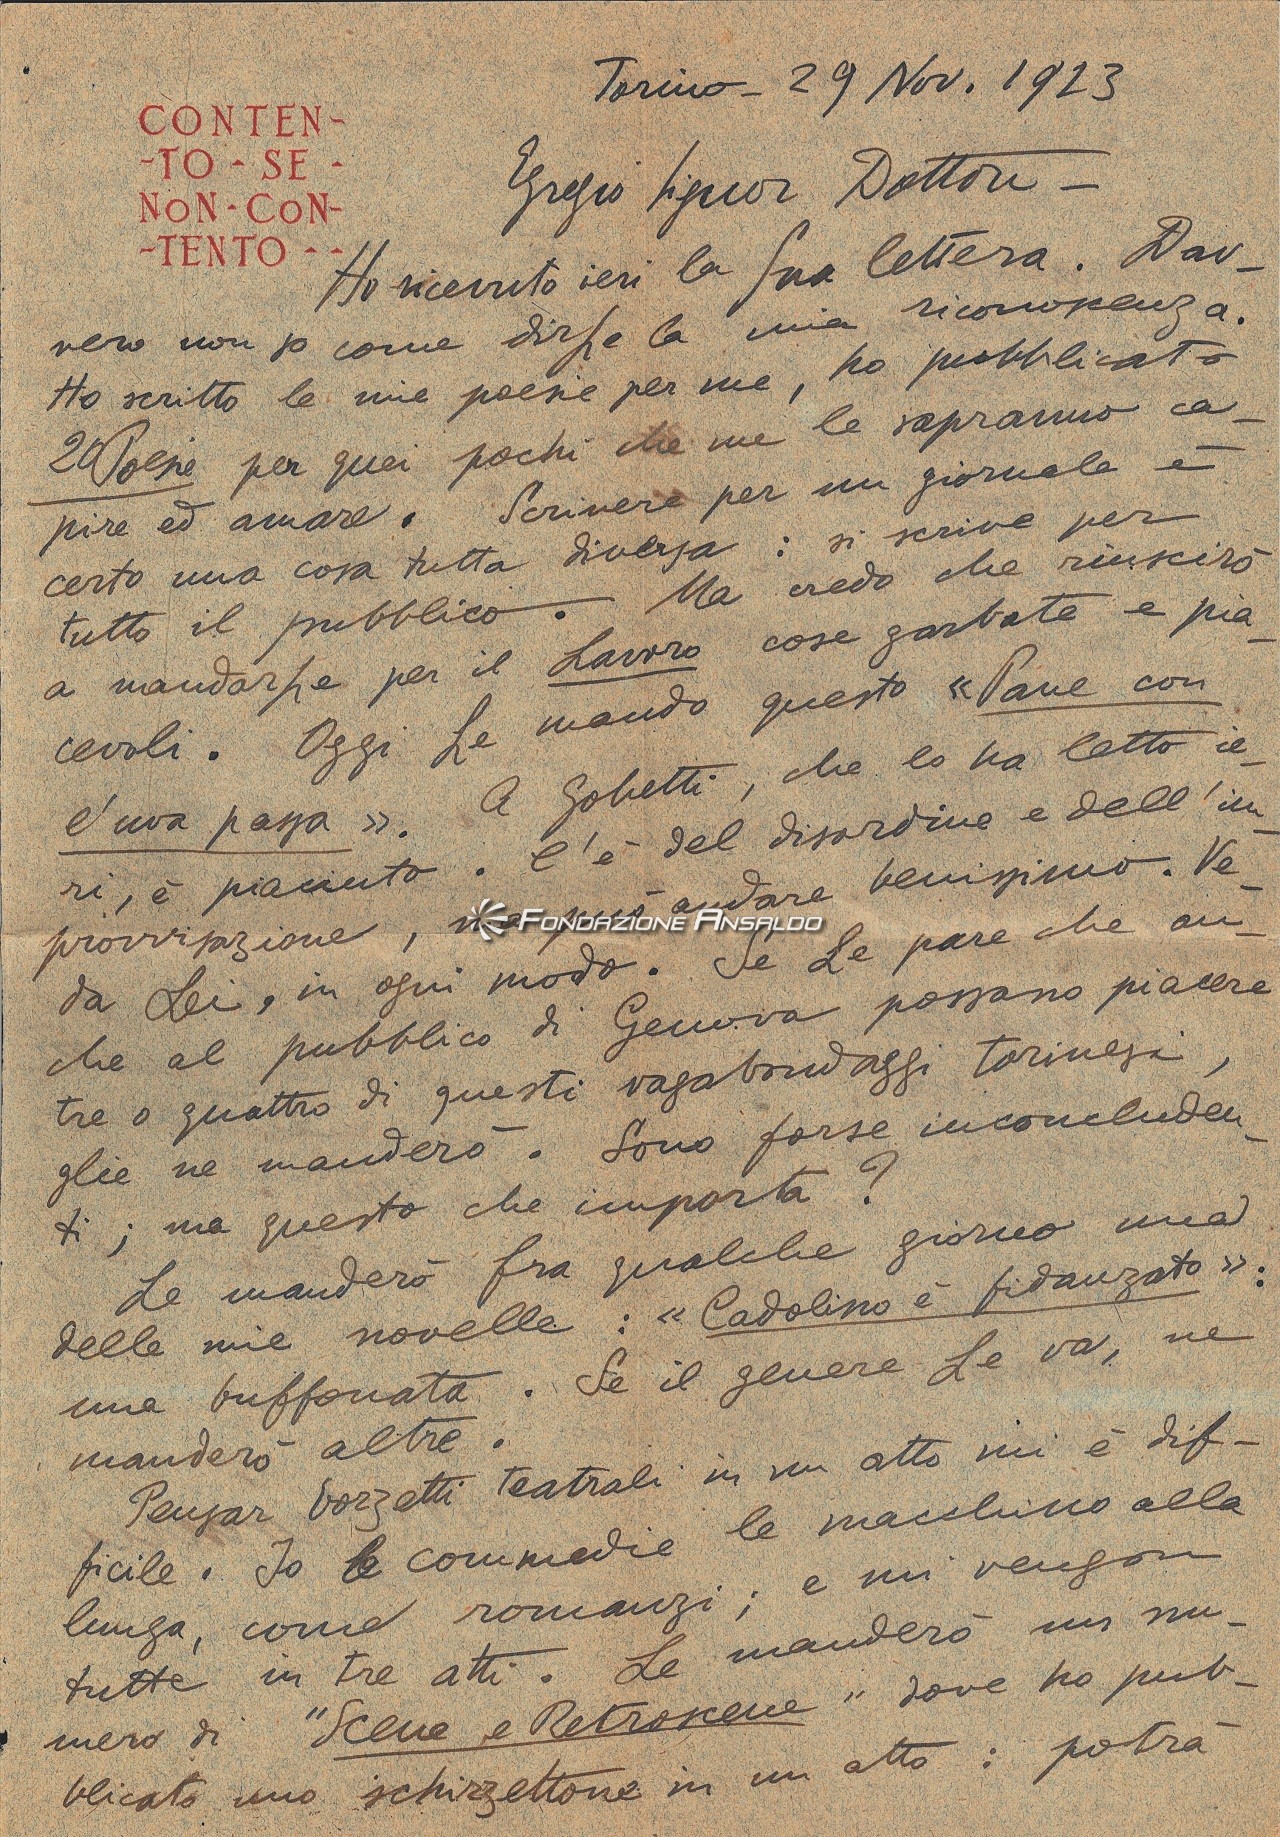 Torino - 29 Nov. 1923
CONTEN-
-TO - SE -
NON - CON-
-TENTO - -
Egregio Signor Dottore -
Ho ricevuto ieri la Sua lettera. Dav-
vero non so come dirLe la mia riconoscenza.
Ho scritto le mie poesie per me, ho pubblicato
20 Poesie per quei pochi che me le sapranno ca-
pire ed amare. Scrivere per un giornale è
certo una cosa tutta diversa: si scrive per
tutto il pubblico. Ma credo che riuscirò
a mandarLe per il Lavoro cose garbate e pia-
cevoli. Oggi Le mando questo «Pane con
l'uva passa». A Gobetti, che lo ha letto ie-
ri, è piaciuto. C'è del disordine e dell'im-
provvisazione, ma può andare benissimo. Ve-
FONDAZIONE ANSALDO
da Lei, in ogni modo. Se Le pare che an-
che al pubblico di Genova possano piacere
tre o quattro di questi vagabondaggi torinesi,
glie ne manderò. Sono forse inconcluden-
ti; ma questo che importa?
Le manderò fra qualche giorno una
delle mie novelle: «Cadolino è fidanzato»:
una buffonata. Se il genere Le va, ne
manderò altre.
Pensar bozzetti teatrali in un atto mi è dif-
ficile. Io le commedie le macchino alla
lunga, come romanzi; e mi vengon
tutte in tre atti. Le manderò un nu-
mero di "Scene e Retroscene" dove ho pub-
blicato uno schizzettone in un atto: potrà